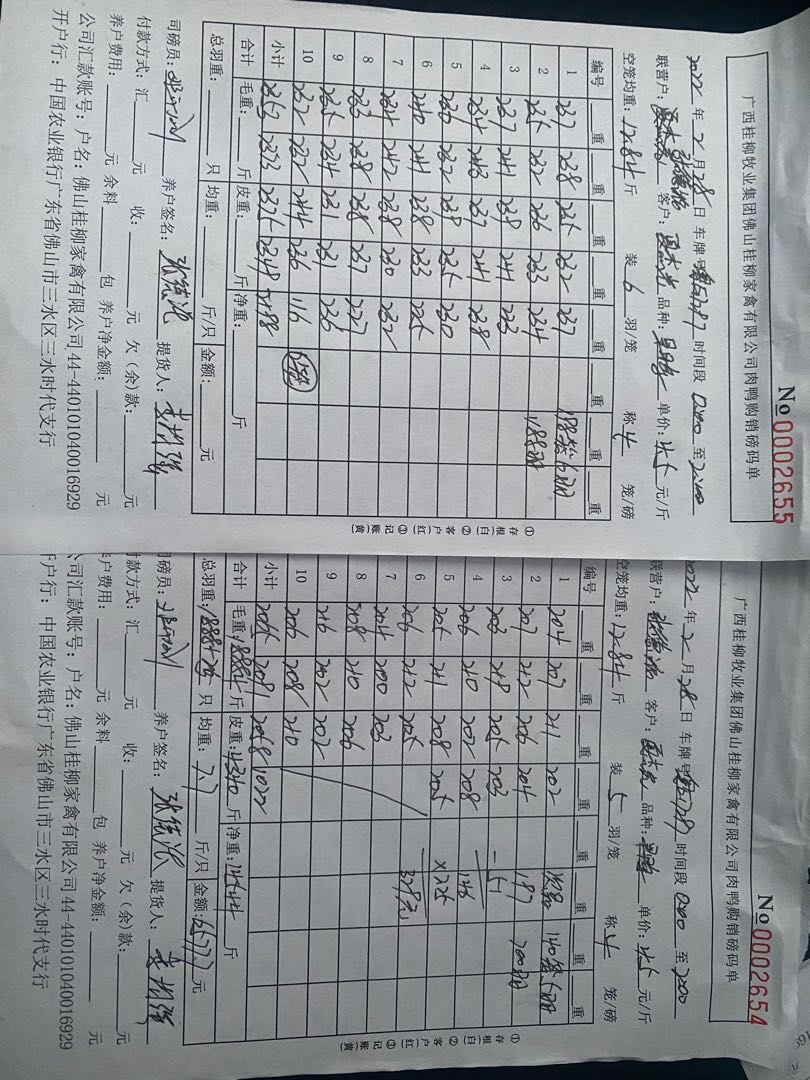 No 0002655
广西桂柳牧业集团佛山桂柳家禽有限公司肉鸭购销磅码单
2022年2月28日 车牌号: 时间段 至
联营户: 张德泥 客户: 品种: 单价:4.5元/斤
空笼均重:12.84斤 装 6 羽/笼 称 4 笼/磅
编号 重 重 重 重 重 重 重
1 237 238 235 232 237 188笼6羽
2 235 232 236 233 234
3 237 241 239 241 223
4 234 243 237 241 238
5 236 232 239 235 230
6 240 241 238 233 225
7 234 242 238 230 232
8 233 238 238 237 227
9 235 234 231 231 226
10 232 232 244 236 116
小计 2353 2373 2375 2349 2188
合计 毛重: 斤 皮重: 斤 净重: 斤
总羽重: 只 均重: 斤/只 金额: 元
司磅员: 养户签名: 张德泥 提货人: 李树强
付款方式:汇 元 收: 元 欠(余)款: 元
养户费用: 元 余料 包 养户净金额: 元
公司汇款账号:户名:佛山桂柳家禽有限公司 44-440101040016929
开户行:中国农业银行广东省佛山市三水区三水时代支行
①存根(白) ②客户(红) ③记账(黄)
No 0002654
广西桂柳牧业集团佛山桂柳家禽有限公司肉鸭购销磅码单
2022年2月28日 车牌号: 时间段 至
联营户: 张德泥 客户: 品种: 单价:4.5元/斤
空笼均重:12.84斤 装 5 羽/笼 称 4 笼/磅
编号 重 重 重 重 重 重 重
1 204 207 211 202 140笼5羽
2 207 212 206 204 187 700羽
3 203 219 205 203 -51
4 206 210 202 208
5 205 211 208 205
6 206 212 205
7 204 200 203
8 208 210 206
9 216 202 202
10 206 208 210
小计 2065 2091 2058 1022
合计 毛重:18884斤 皮重:4340斤 净重:14544斤
总羽重: 只 均重:7.7斤/只 金额: 元
司磅员: 养户签名: 张德泥 提货人: 李树强
付款方式:汇 元 收: 元 欠(余)款: 元
养户费用: 元 余料 包 养户净金额: 元
公司汇款账号:户名:佛山桂柳家禽有限公司 44-440101040016929
开户行:中国农业银行广东省佛山市三水区三水时代支行
①存根(白) ②客户(红) ③记账(黄)